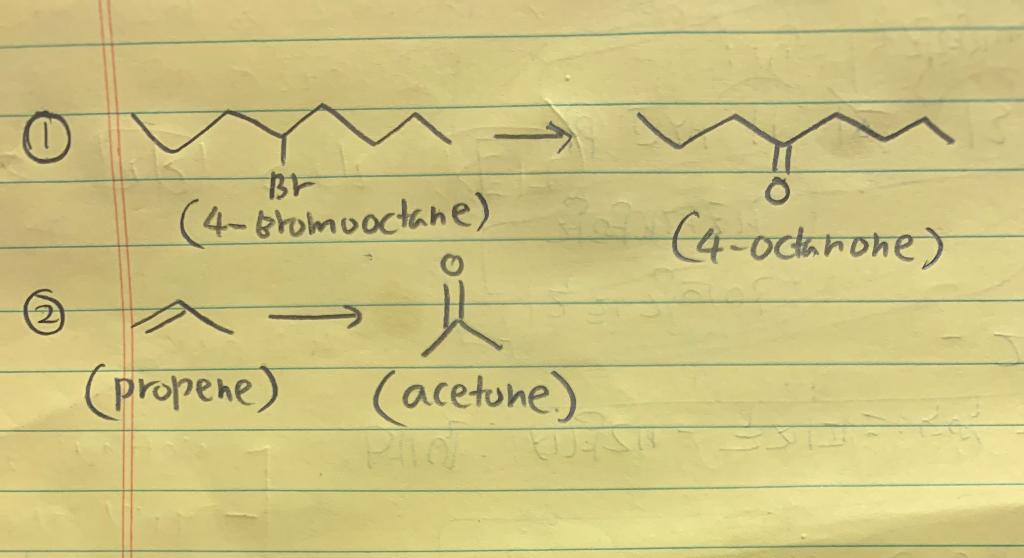 ①
Br
(4-Bromooctane)
O
(4-octanone)
②
O
(propene)
(acetone)